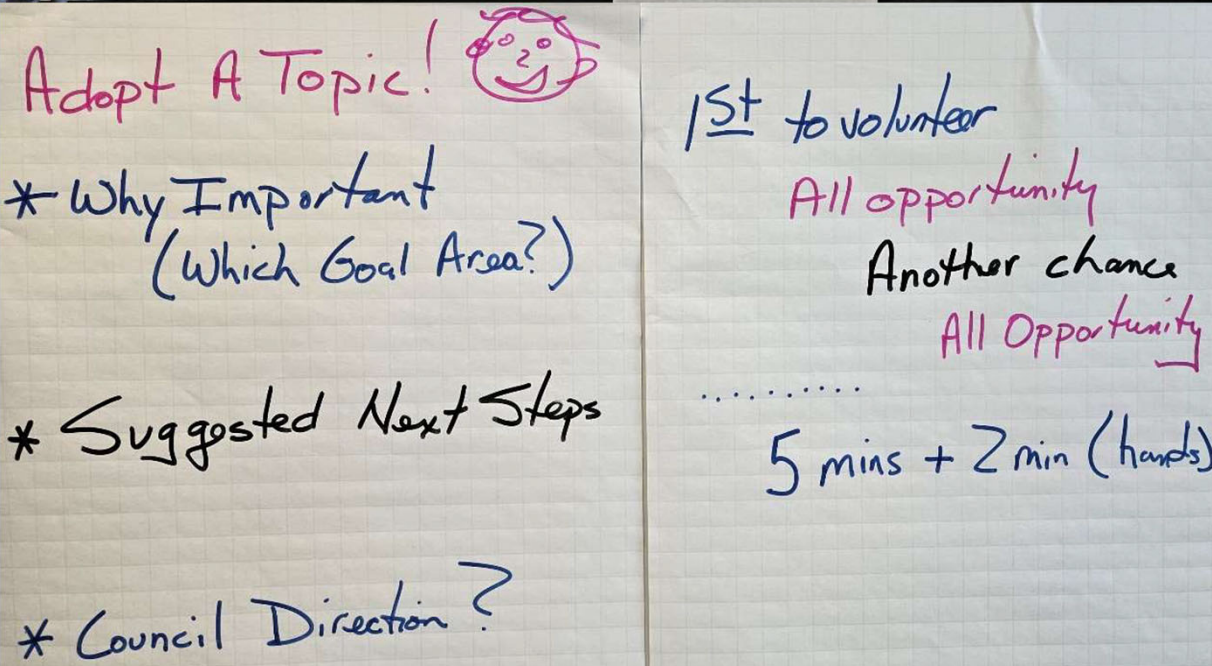 Adopt A Topic!
* Why Important
(Which Goal Area?)
* Suggested Next Steps
* Council Direction?
1st to volunteer
All opportunity
Another chance
All Opportunity
..........
5 mins + 2 min (hands)